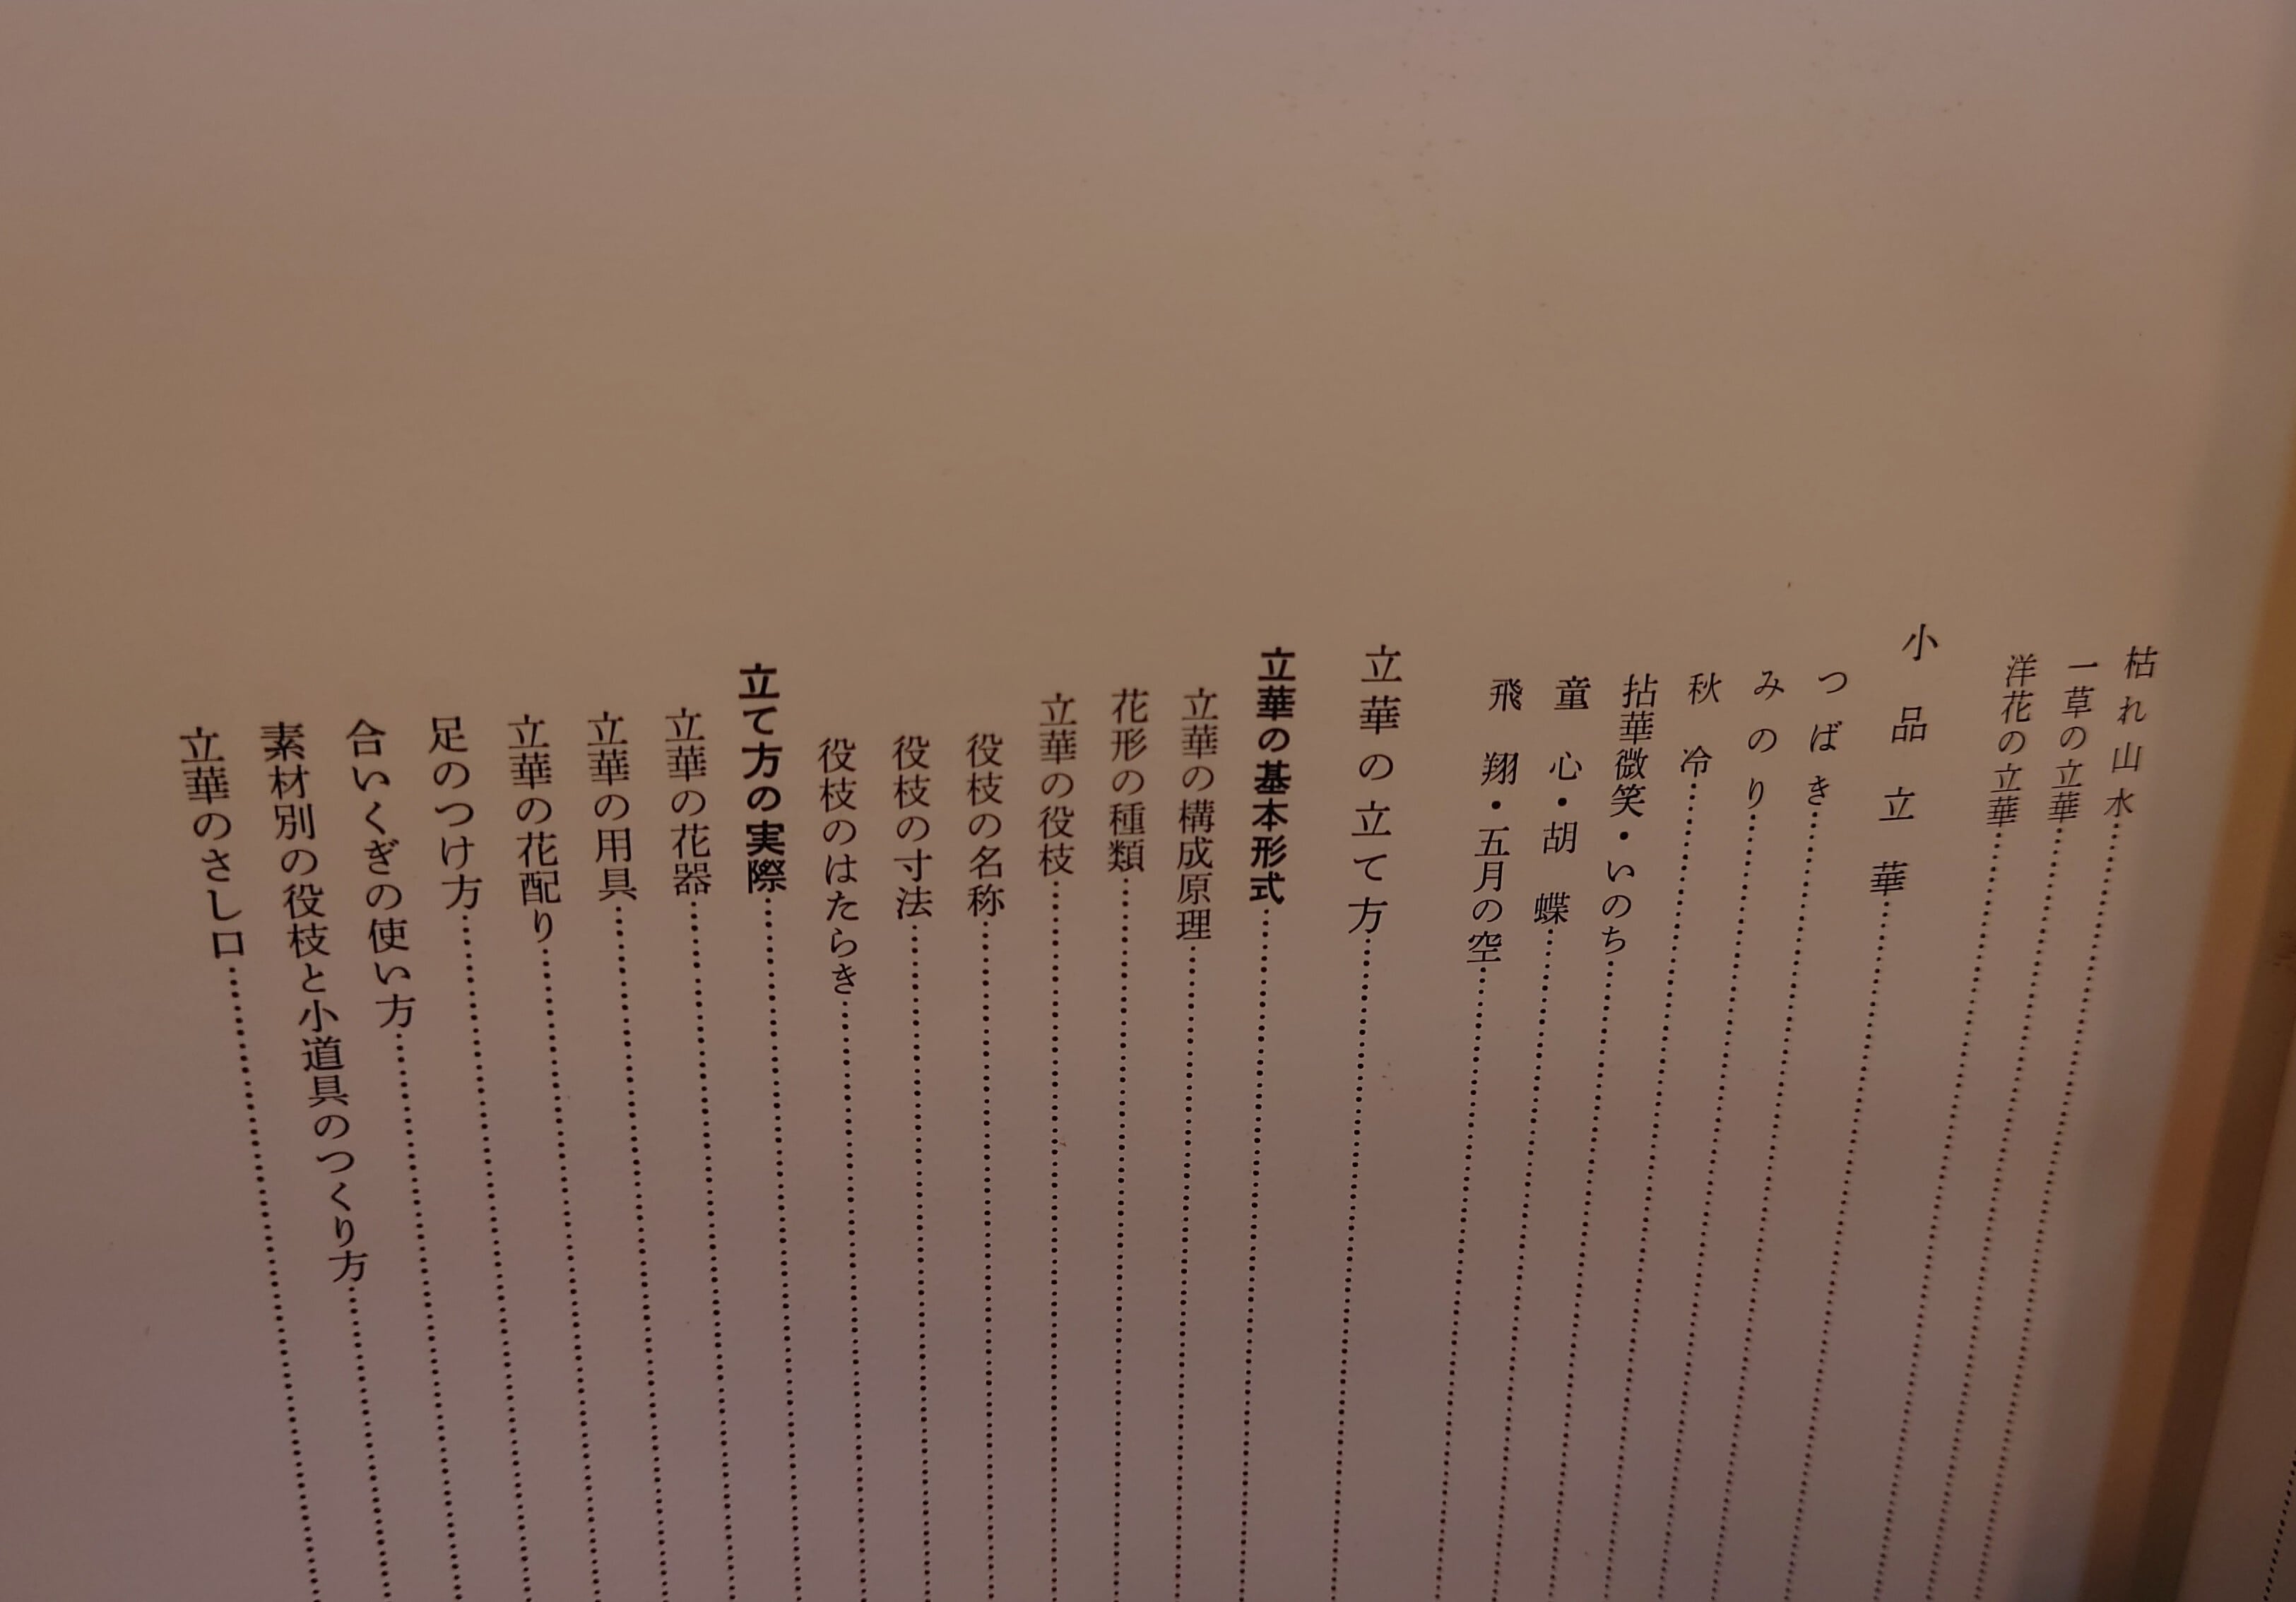 枯れ山水
一草の立華
洋花の立華
小品立華
つばき
みのり
秋冷
拈華微笑・いのち
童心・胡蝶
飛翔・五月の空
立華の立て方
立華の基本形式
立華の構成原理
花形の種類
立華の役枝
役枝の名称
役枝の寸法
役枝のはたらき
立て方の実際
立華の花器
立華の用具
立華の花配り
足のつけ方
合いくぎの使い方
素材別の役枝と小道具のつくり方
立華のさし口